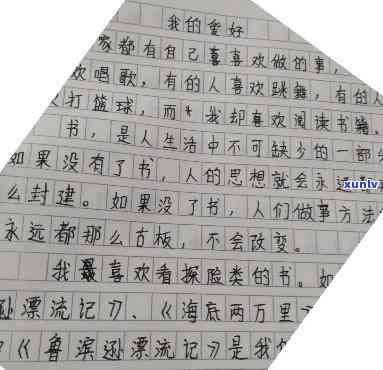 我的爱好
家都有自己喜喜欢做的事,
欢唱歌,有的人喜欢跳舞,有的人
打篮球,而我却喜欢阅读书籍,
书,是人生活中不可缺少的一部
如果没有了书,人的思想就会永远
么封建。如果没了书,人们做事方法
永远都那么古板,不会改变。
我最喜欢看探险类的书。如
孙漂流记》、《海底两万里》
《鲁滨逊漂流记》是我
xunlv